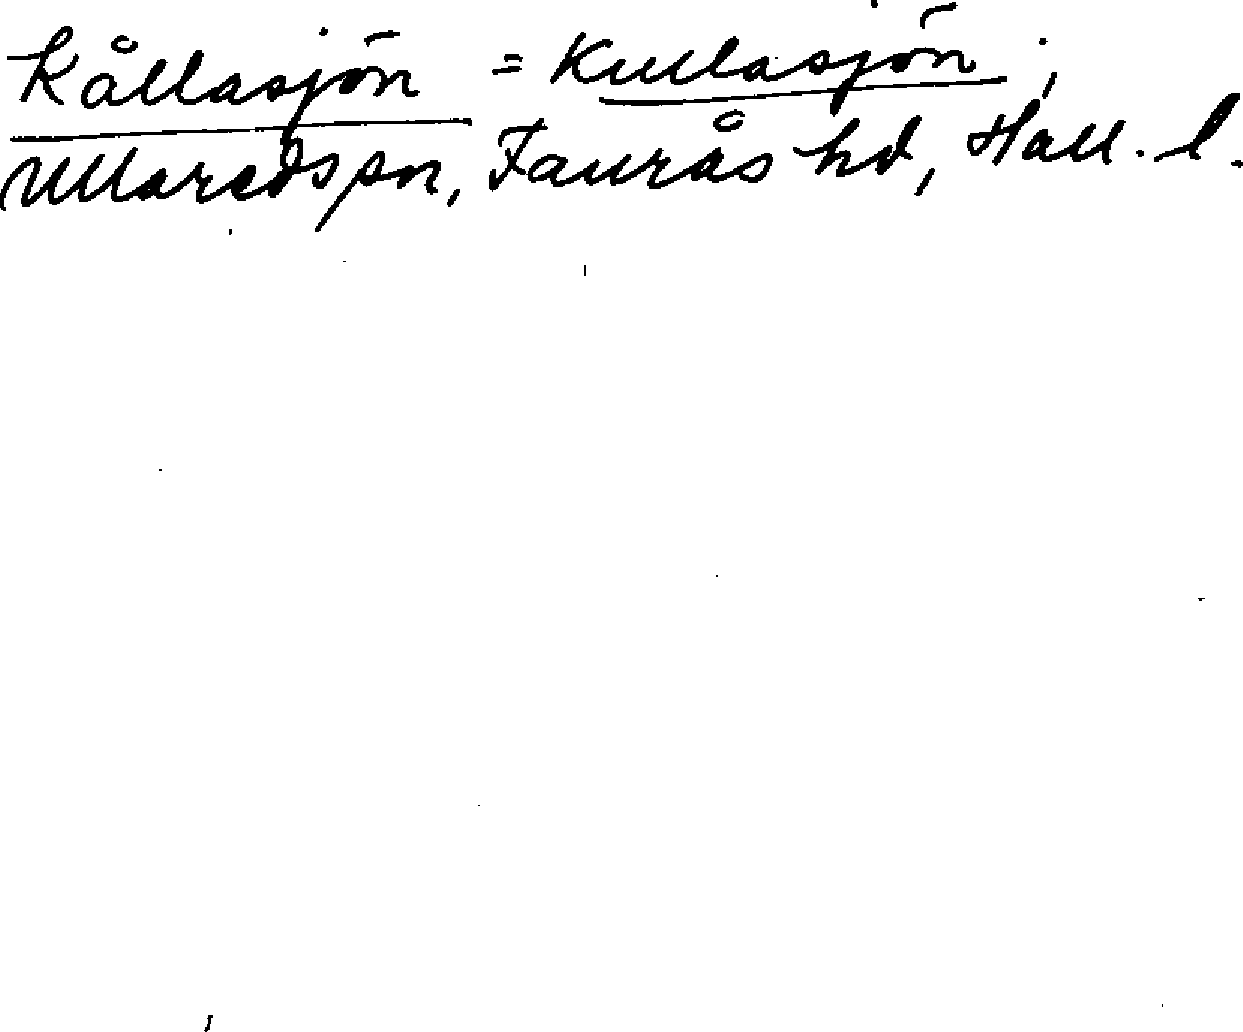 Kållasjön = Kullasjön;
Ullareds sn, Faurås hd, Hall. l.